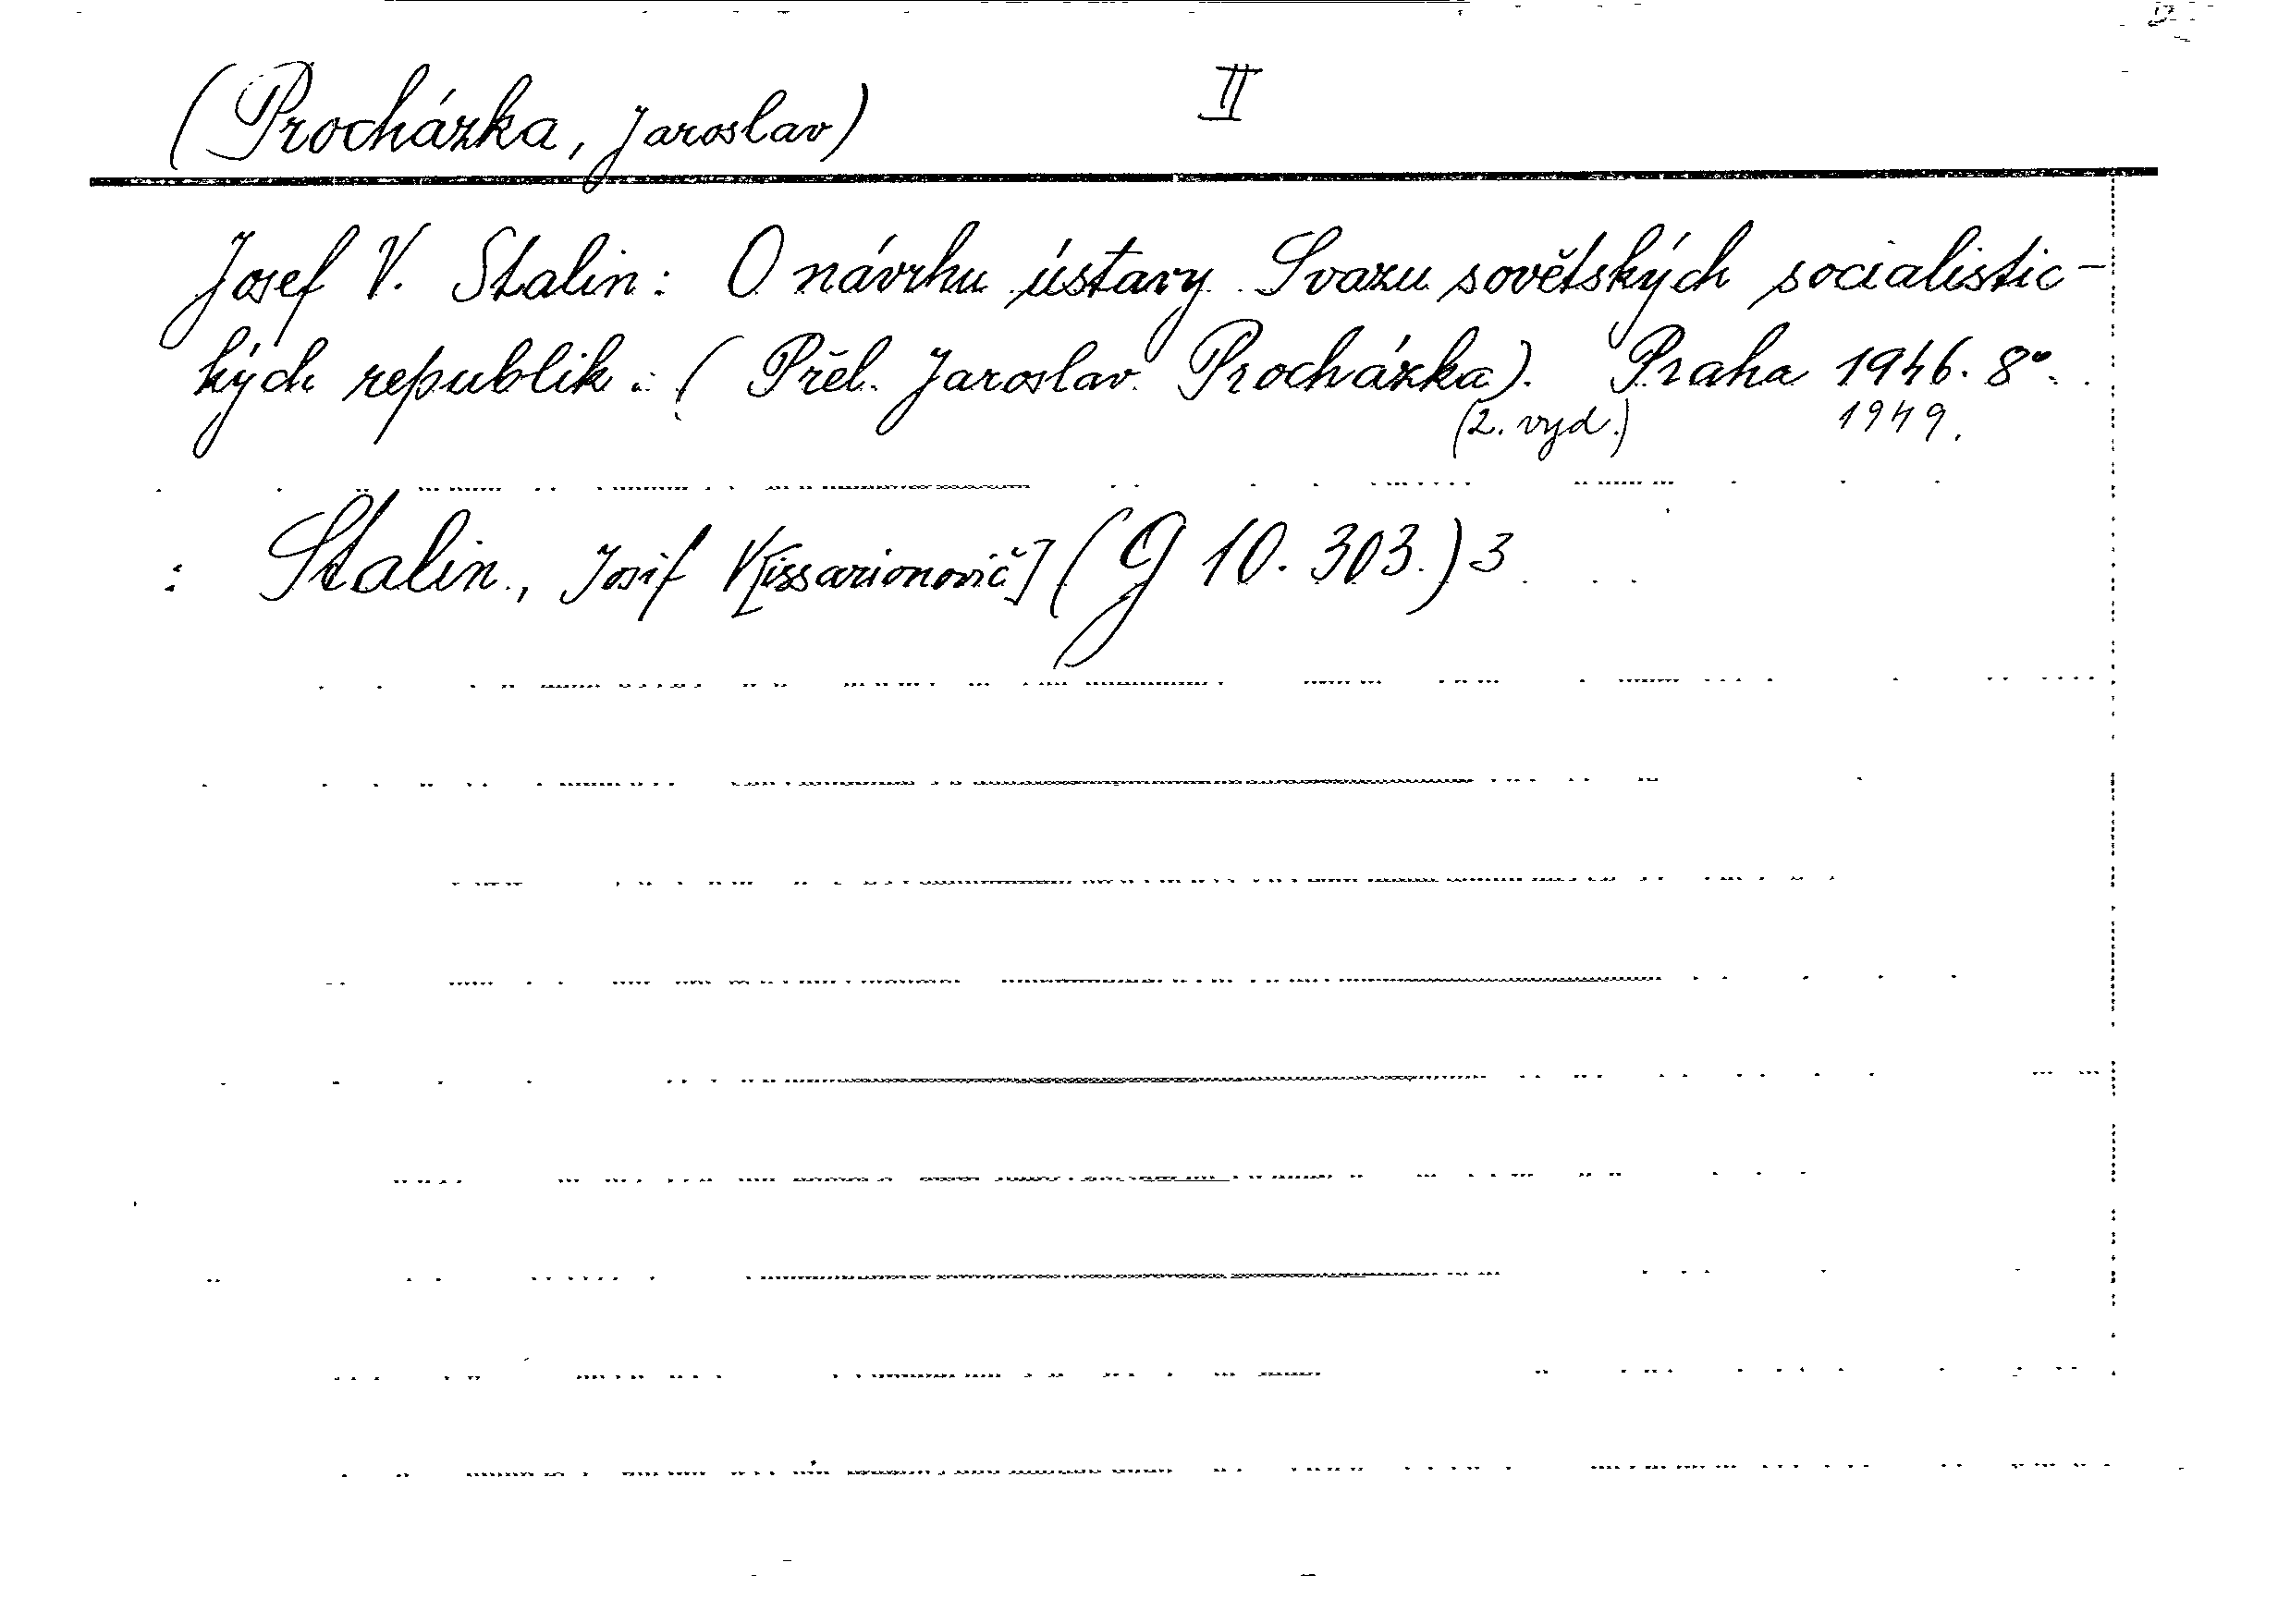 (Procházka, Jaroslav) II
Josef V. Stalin: O návrhu ústavy Svazu sovětských socialistic-
kých republik. (Přel. Jaroslav Procházka). Praha 1946. 8°.
(2. vyd.) 1949.
: Stalin, Josif V[issarionovič] (G 10.303.) 3